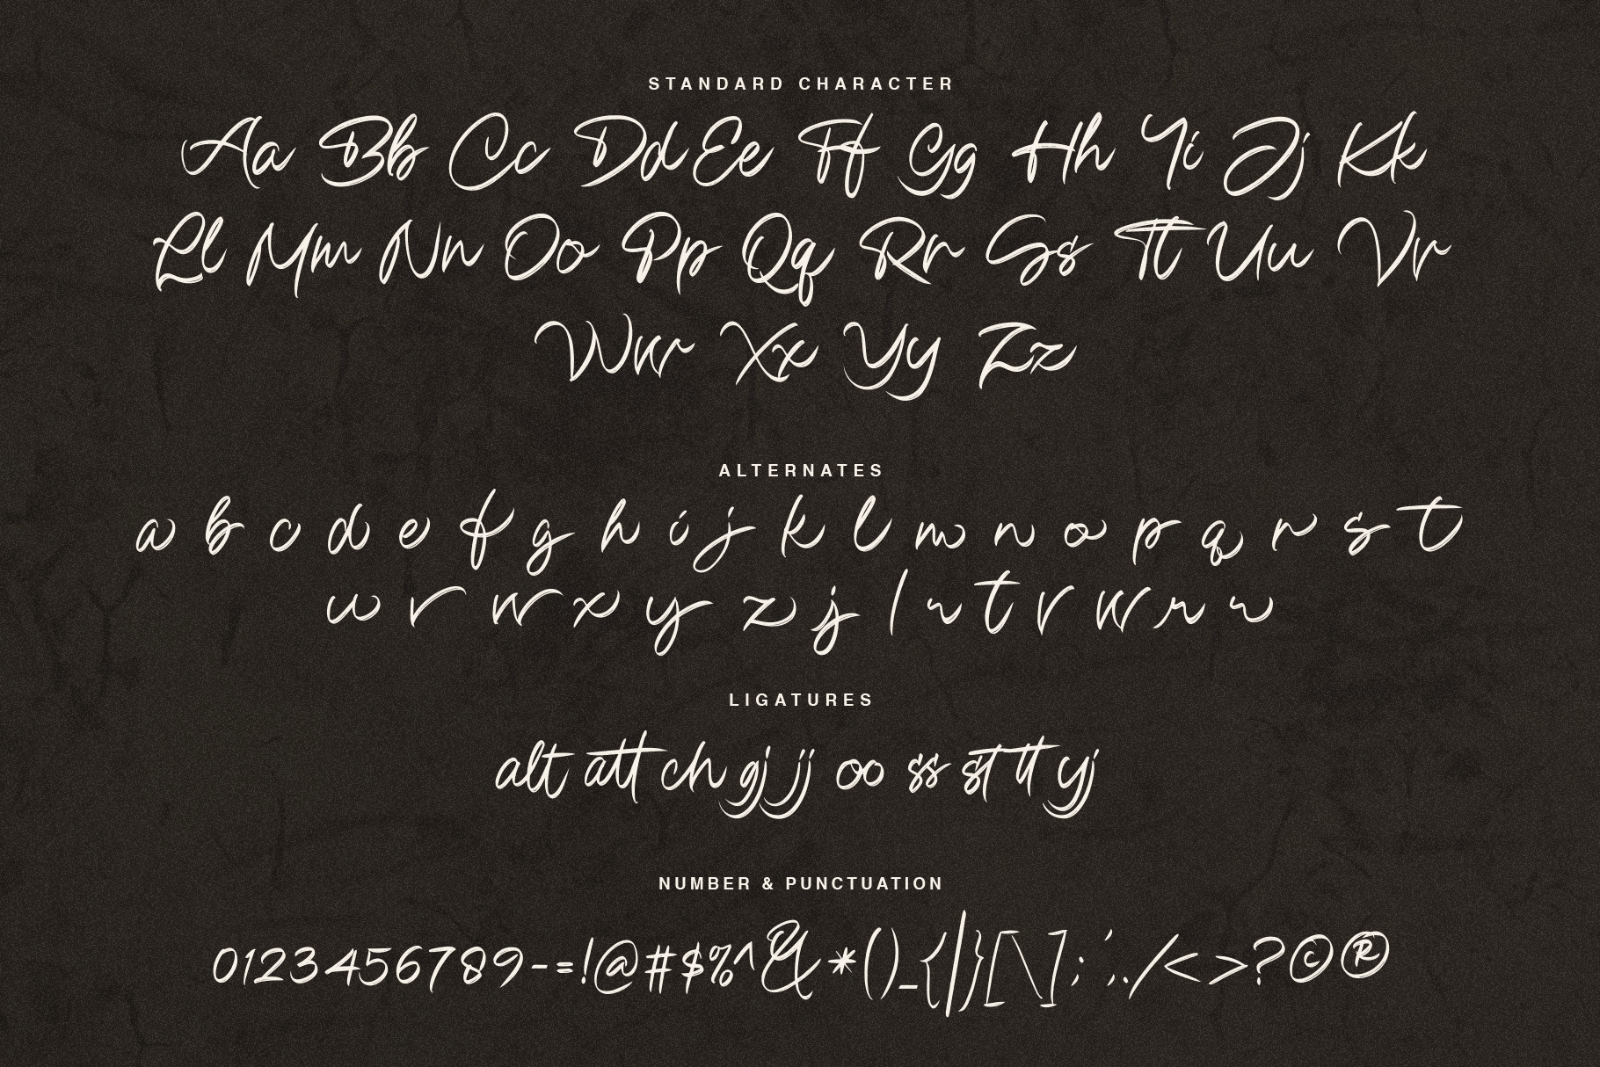 STANDARD CHARACTER
Aa Bb Cc Dd Ee Ff Gg Hh Ii Jj Kk
Ll Mm Nn Oo Pp Qq Rr Ss Tt Uu Vv
Ww Xx Yy Zz
ALTERNATES
a b c d e f g h i j k l m n o p q r s t
u v w x y z j l r t v w r r
LIGATURES
alt att ch gj jj oo ss st tt yj
NUMBER & PUNCTUATION
0123456789-=!@#$%^&*()_{|}[\];',./<>?©®